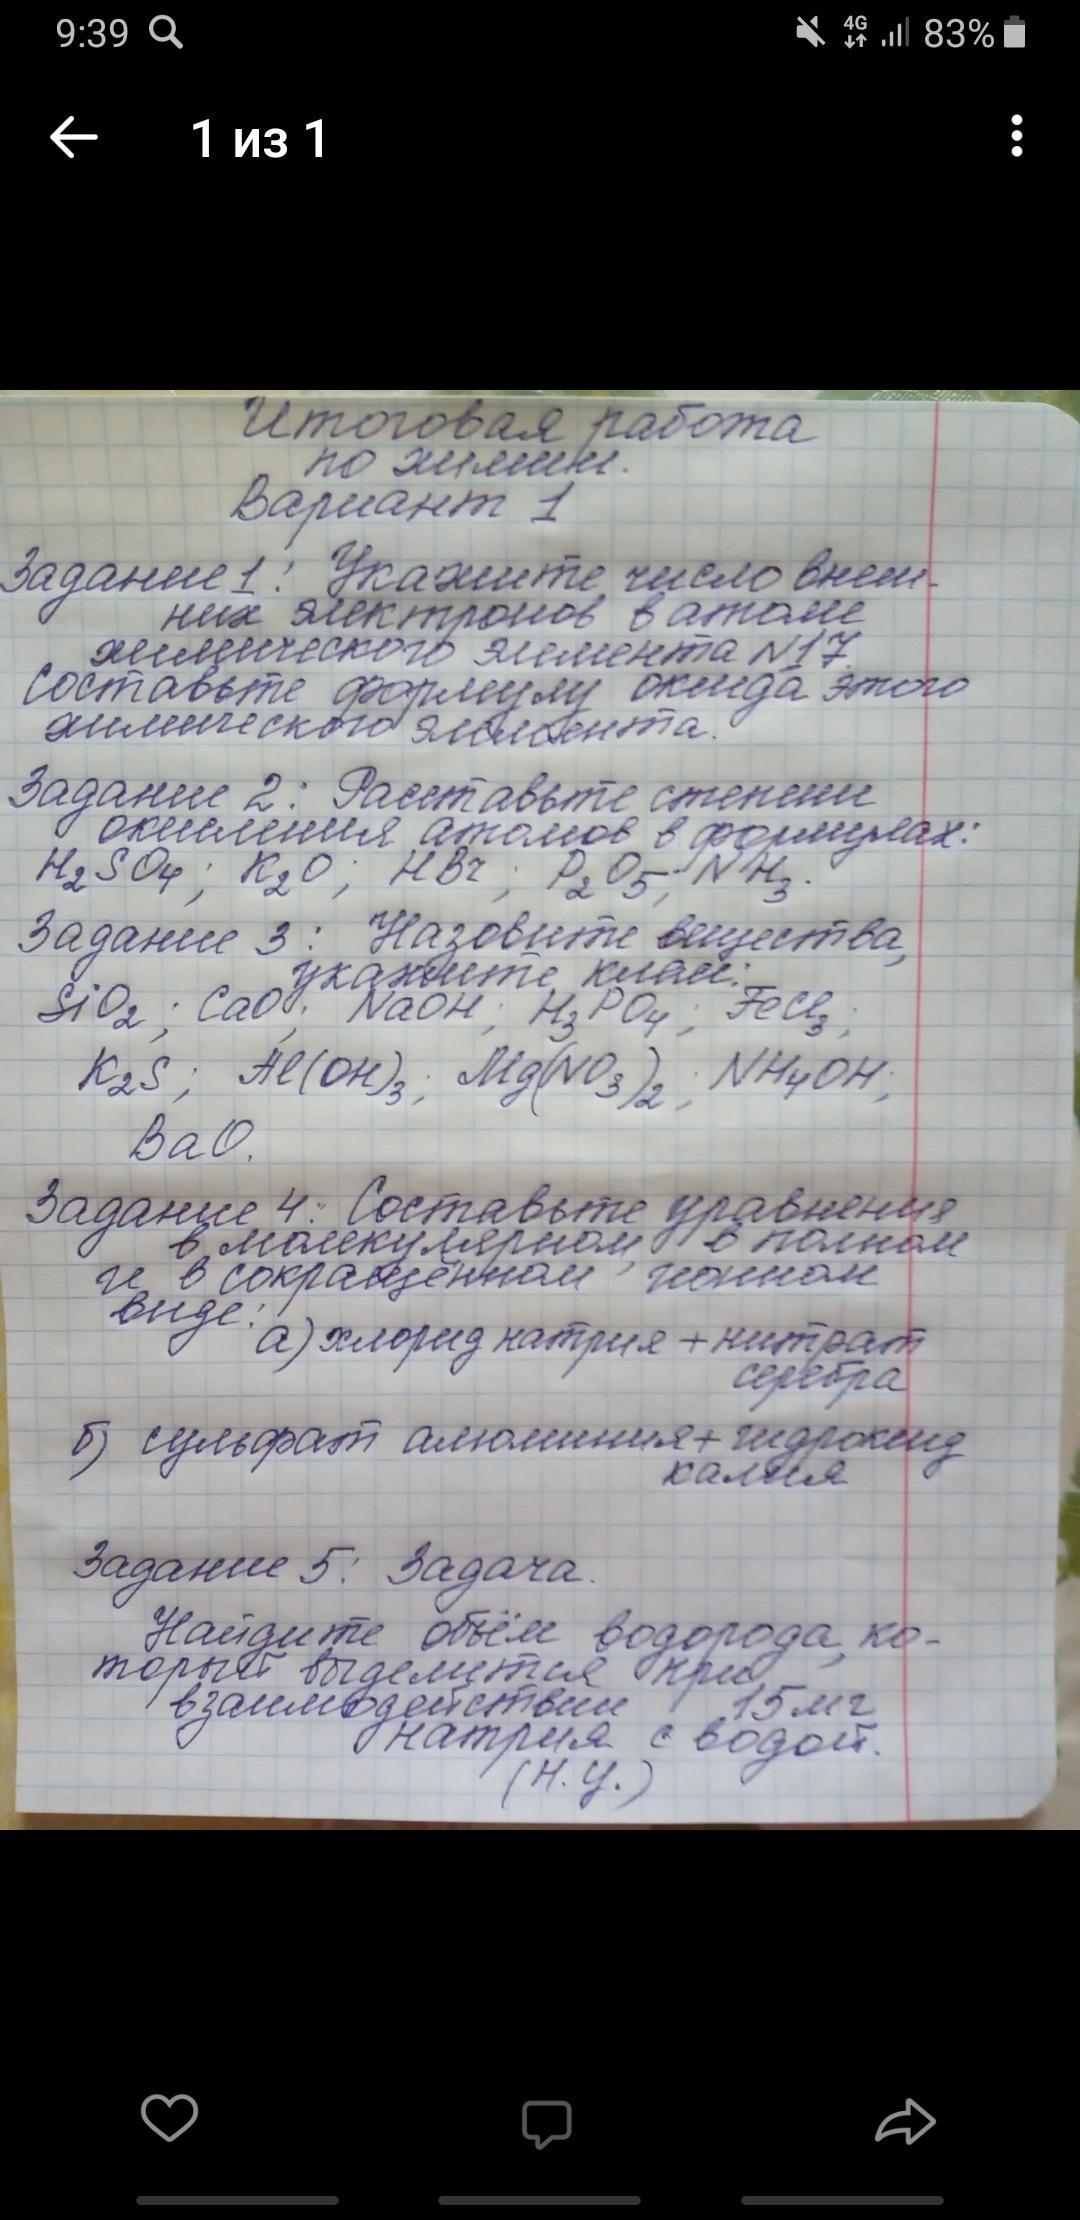 9:39
4G
83%
1 из 1
Итоговая работа
по химии.
Вариант 1
Задание 1: Укажите число внеш-
них электронов в атоме
химического элемента №17.
Составьте формулу оксида этого
химического элемента.
Задание 2: Расставьте степени
окисления атомов в формулах:
H₂SO₄; K₂O; HBr; P₂O₅; NH₃.
Задание 3: Назовите вещества,
укажите класс:
SiO₂; CaO; NaOH; H₃PO₄; FeCl₃;
K₂S; Al(OH)₃; Mg(NO₃)₂; NH₄OH;
BaO.
Задание 4: Составьте уравнения
в молекулярном, в полном
и в сокращённом ионном
виде:
а) хлорид натрия + нитрат
серебра
б) сульфат алюминия + гидроксид
калия
Задание 5: Задача.
Найдите объём водорода, ко-
торый выделится при
взаимодействии 15 мг
натрия с водой.
(н.у.)